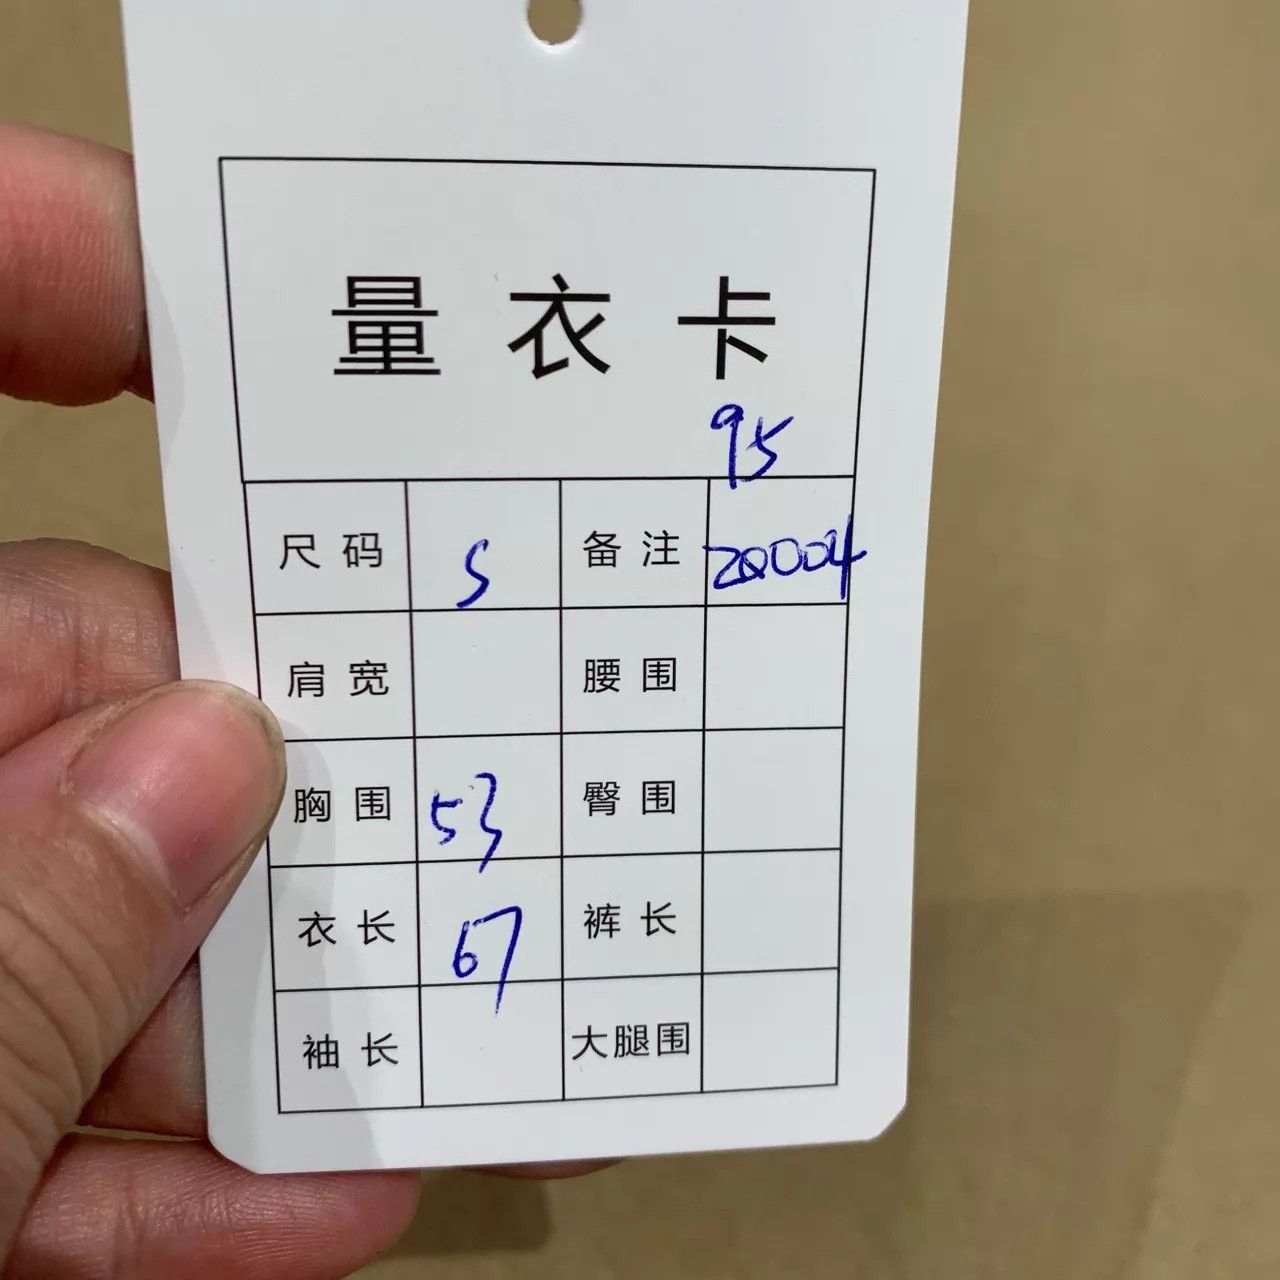 量衣卡
95
尺码 S 备注 20004
肩宽 腰围
胸围 53 臀围
衣长 67 裤长
袖长 大腿围